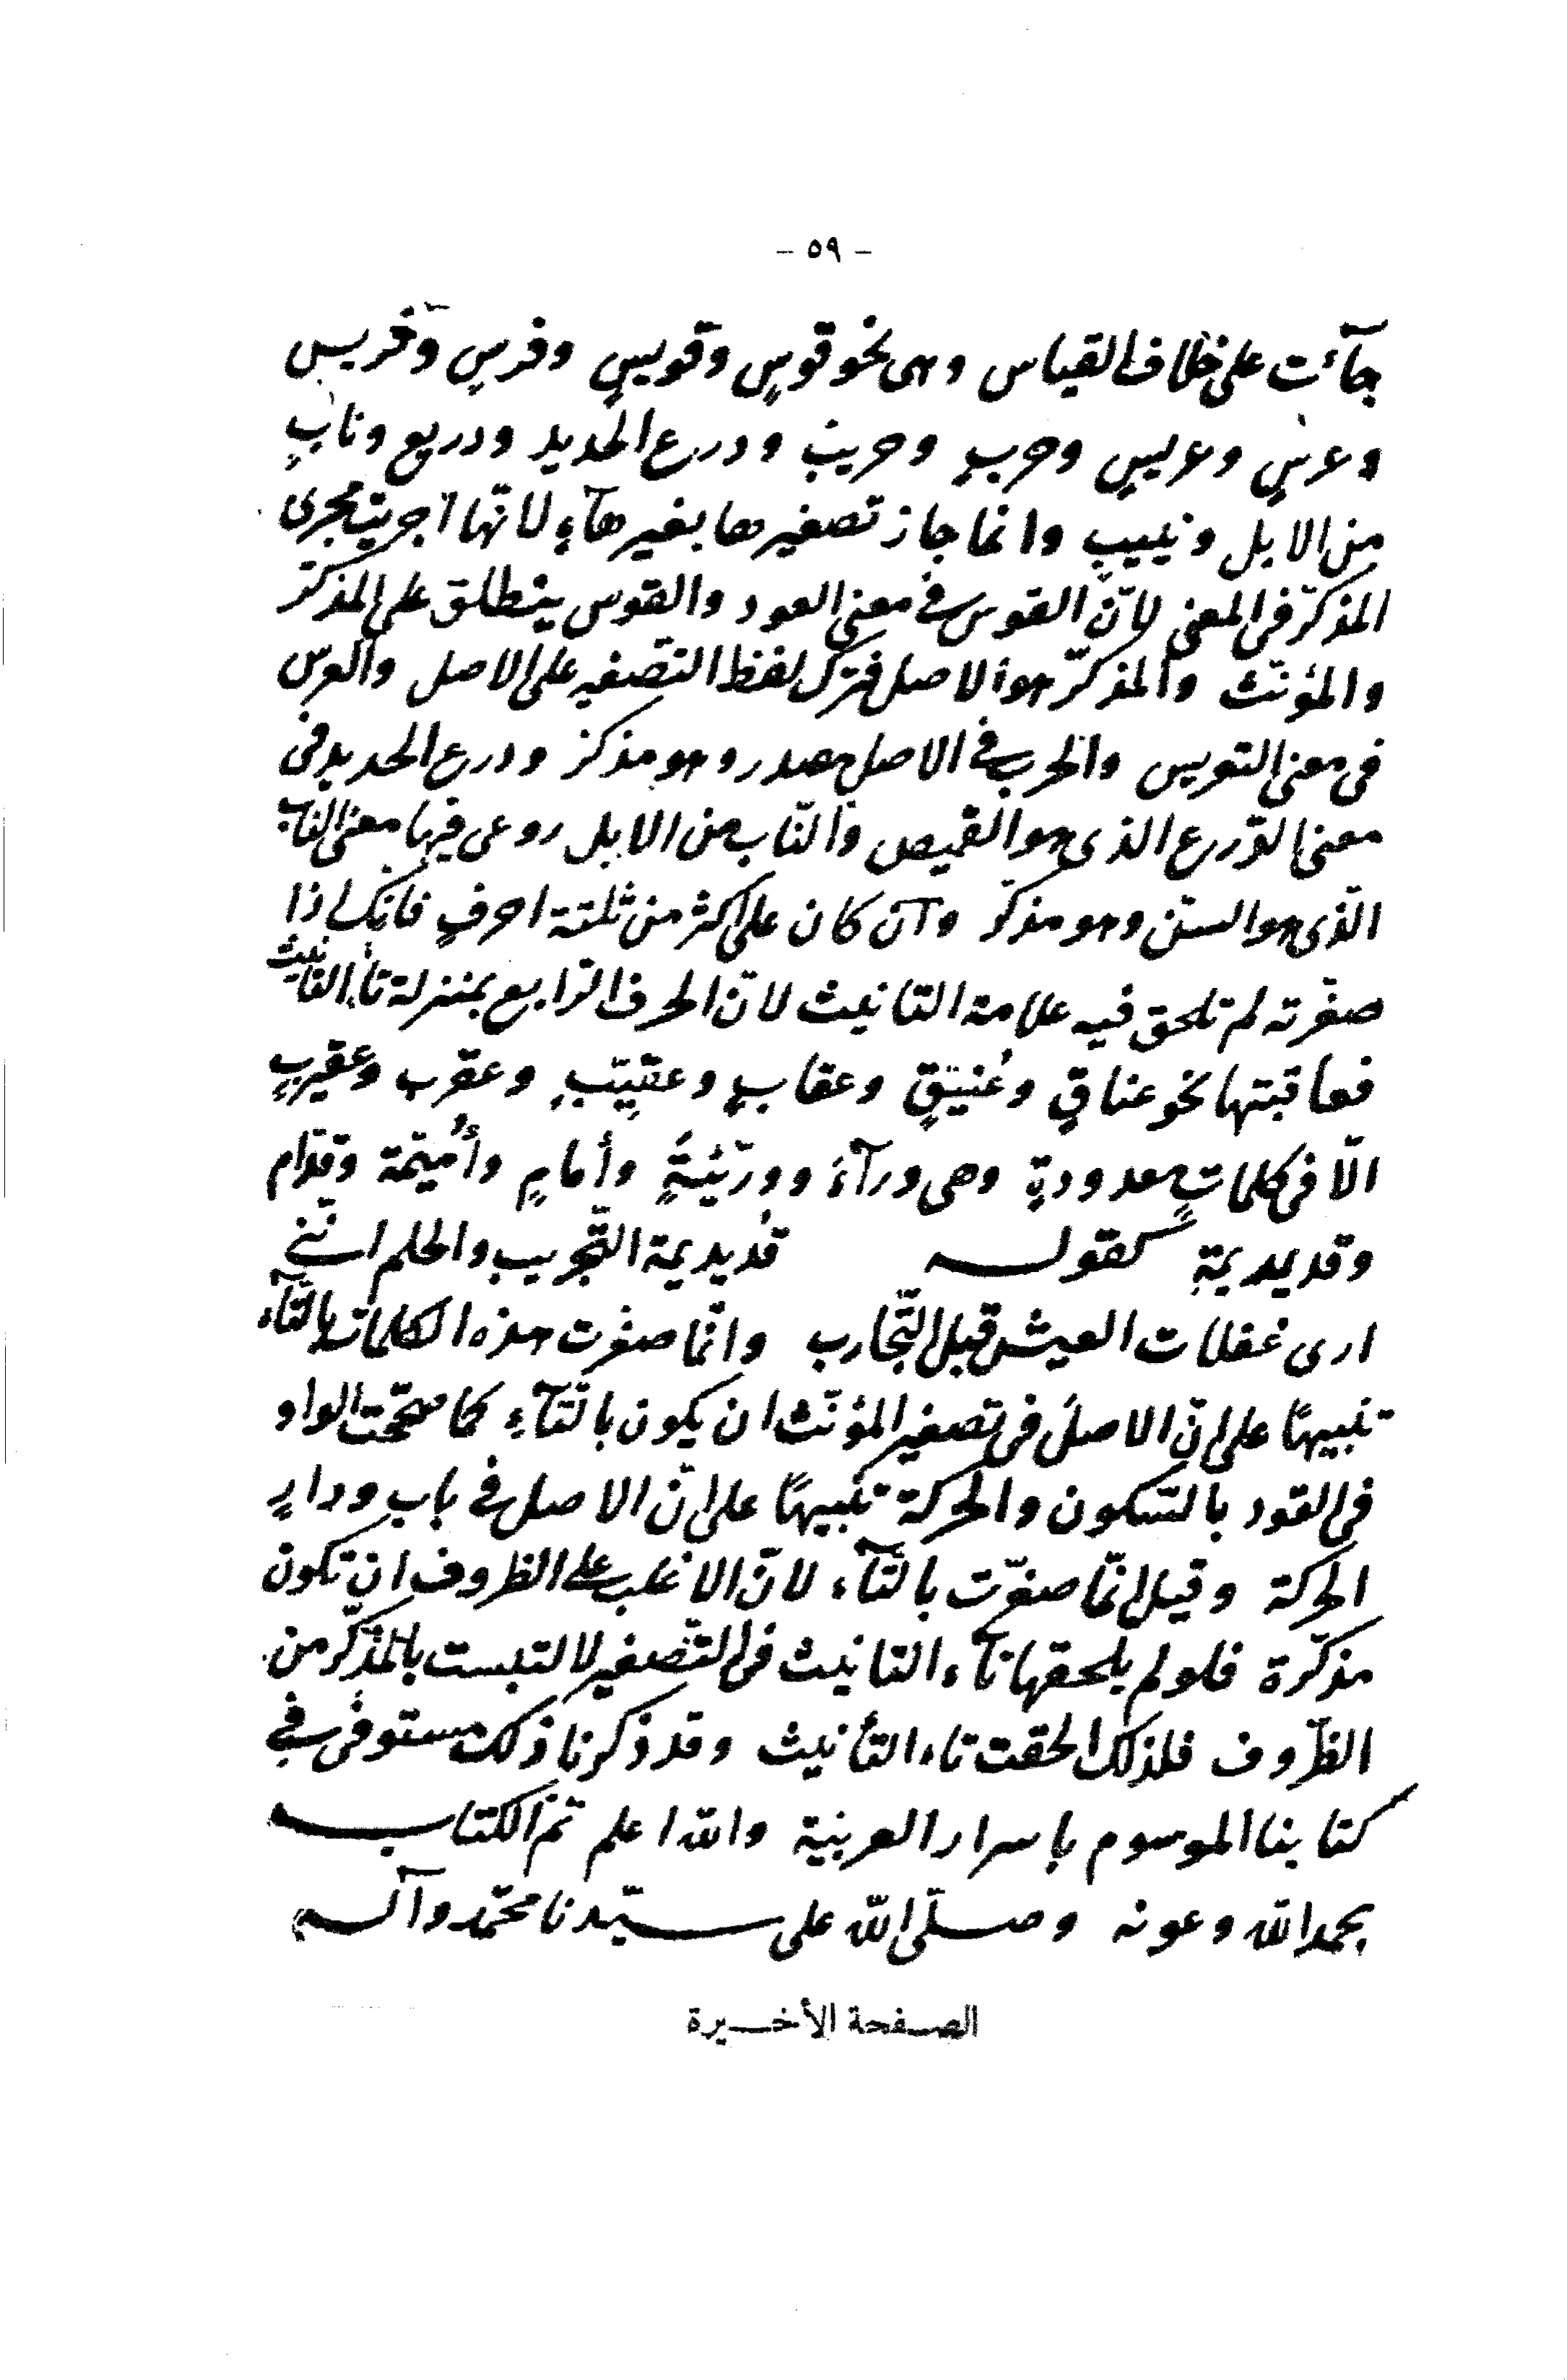 - ٥٩ -
جآءت على خلاف القياس وهى نحو قوسٍ وقويسٍ وفرسٍ وفريس
وعرسٍ وعريسٍ وحربٍ وحريب ودرع الحديد ودريع ونابٍ
من الابل ونييبٍ وانما جاز تصغيرها بغير هآءٍ لانّها اجريت مجرى
المذكّر فى المعنى لانّ القوس فى معنى العود والقوس ينطلق على المذكّر
والمؤنّث والمذكّر هو الاصل فترك لفظ التصّغير على الاصل والعرس
فى معنى التعريس والحرب فى الاصل مصدر وهو مذكر ودرع الحديد فى
معنى الدّرع الذى هو القميص والنّاب من الابل روعى فيها معنى النّاب
الذّى هو السنّ وهو مذكّر وان كان على اكثر من ثلثة احرفٍ فانّك اذا
صغّرته لم تلحق فيه علامة التانيث لانّ الحرف الرّابع بمنزلة تاء التانيث
فعاقبتها نحو عناقٍ وعُنيّقٍ وعقابٍ وعقيّبٍ وعقرب وعقيربٍ
الّا فى كلماتٍ معدودةٍ وهى ورآءَ وورّيئةٍ وأمامٍ وأُميّمة وقدّام
وقديديمةٍ كقولـه قُديديمة التّجريب والحلم انّنى
ارى غفلات العيش قبل التّجارب وانّما صغّرت هذه الكلمات بالتّآء
تنبيهًا على انّ الاصل فى تصغير المؤنّث ان يكون بالتّآءِ كما صحّحت الواو
فى القود بالسّكون والحركة تنبيهًا على انّ الاصل فى باب ودارٍ
الحركة وقيل انّما صغّرت بالتّآء لانّ الاغلب على الظروف ان تكون
مذكّرة فلو لم يلحقها تآء التانيث فى التصّغير لالتبست بالمذكّر من
الظّروف فلذلك الحقت تاء التأنيث وقد ذكرنا ذلك مستوفى فى
كتابنا الموسوم باسرار العربيّة والله اعلم تمّ الكتاب
بحمد الله وعونه وصلّى الله على سيّدنا محمّد وآلـه
الصفحة الأخيرة